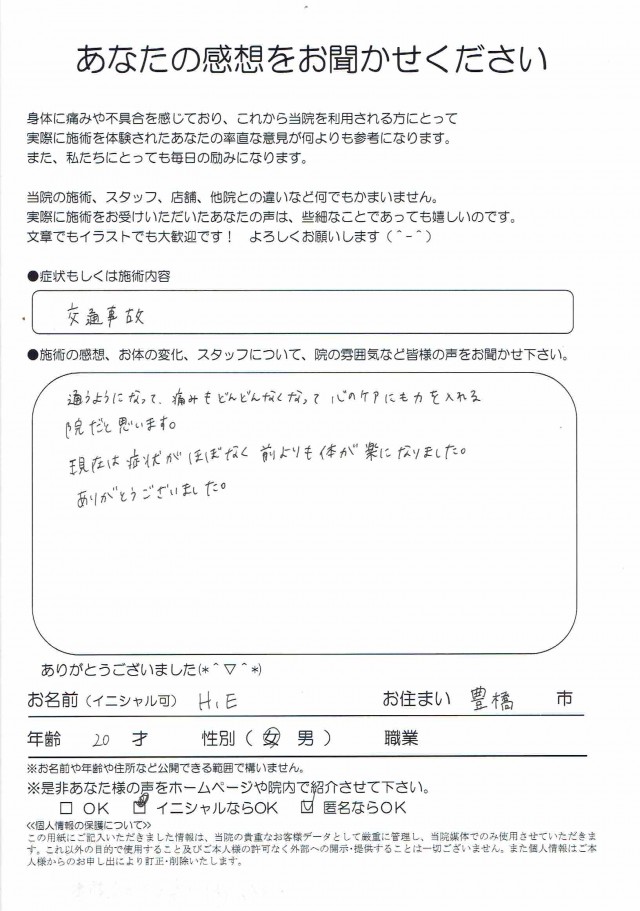 あなたの感想をお聞かせください
身体に痛みや不具合を感じており、これから当院を利用される方にとって
実際に施術を体験されたあなたの率直な意見が何よりも参考になります。
また、私たちにとっても毎日の励みになります。
当院の施術、スタッフ、店舗、他院との違いなど何でもかまいません。
実際に施術をお受けいただいたあなたの声は、些細なことであっても嬉しいのです。
文章でもイラストでも大歓迎です！ よろしくお願いします（＾－＾）
●症状もしくは施術内容
交通事故
●施術の感想、お体の変化、スタッフについて、院の雰囲気など皆様の声をお聞かせ下さい。
通うようになって、痛みもどんどんなくなって心のケアにも力を入れる
院だと思います。
現在は症状がほぼなく前よりも体が楽になりました。
ありがとうございました。
ありがとうございました(*＾▽＾*)
お名前（イニシャル可） H.E お住まい 豊橋 市
年齢 20 才 性別（ 女 男 ） 職業
※お名前や年齢や住所など公開できる範囲で構いません。
※是非あなた様の声をホームページや院内で紹介させて下さい。
□ OK ☑ イニシャルならOK ☑ 匿名ならOK
≪個人情報の保護について≫
この用紙にご記入いただきました情報は、当院の貴重なお客様データとして厳重に管理し、当院媒体でのみ使用させていただきま
す。これ以外の目的で使用すること及びご本人様の許可なく外部への開示・提供することは一切ございません。また個人情報はご本
人様からのお申し出により訂正・削除いたします。